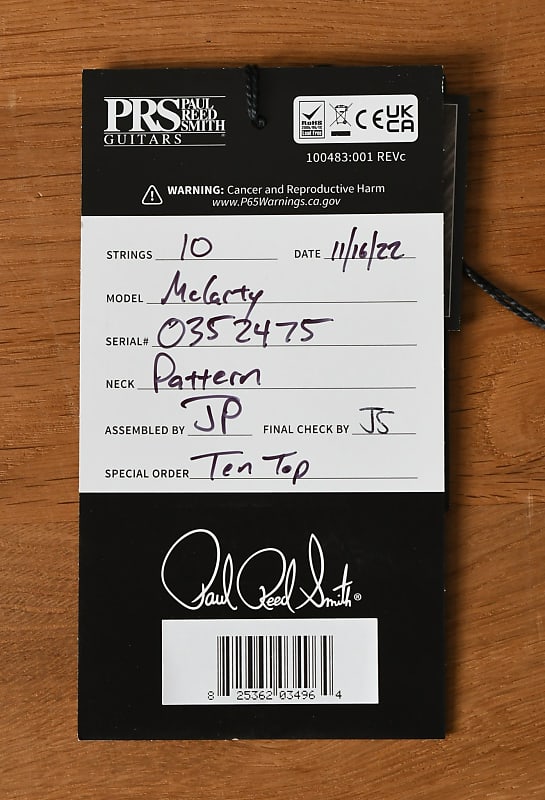 PRS PAUL REED SMITH
GUITARS
RoHS
CE UK CA
100483:001 REVc
WARNING: Cancer and Reproductive Harm
www.P65Warnings.ca.gov
STRINGS 10 DATE 11/16/22
MODEL McCarty
SERIAL# 0352475
NECK Pattern
ASSEMBLED BY JP FINAL CHECK BY JS
SPECIAL ORDER Ten Top
Paul Reed Smith®
8 25362 03496 4